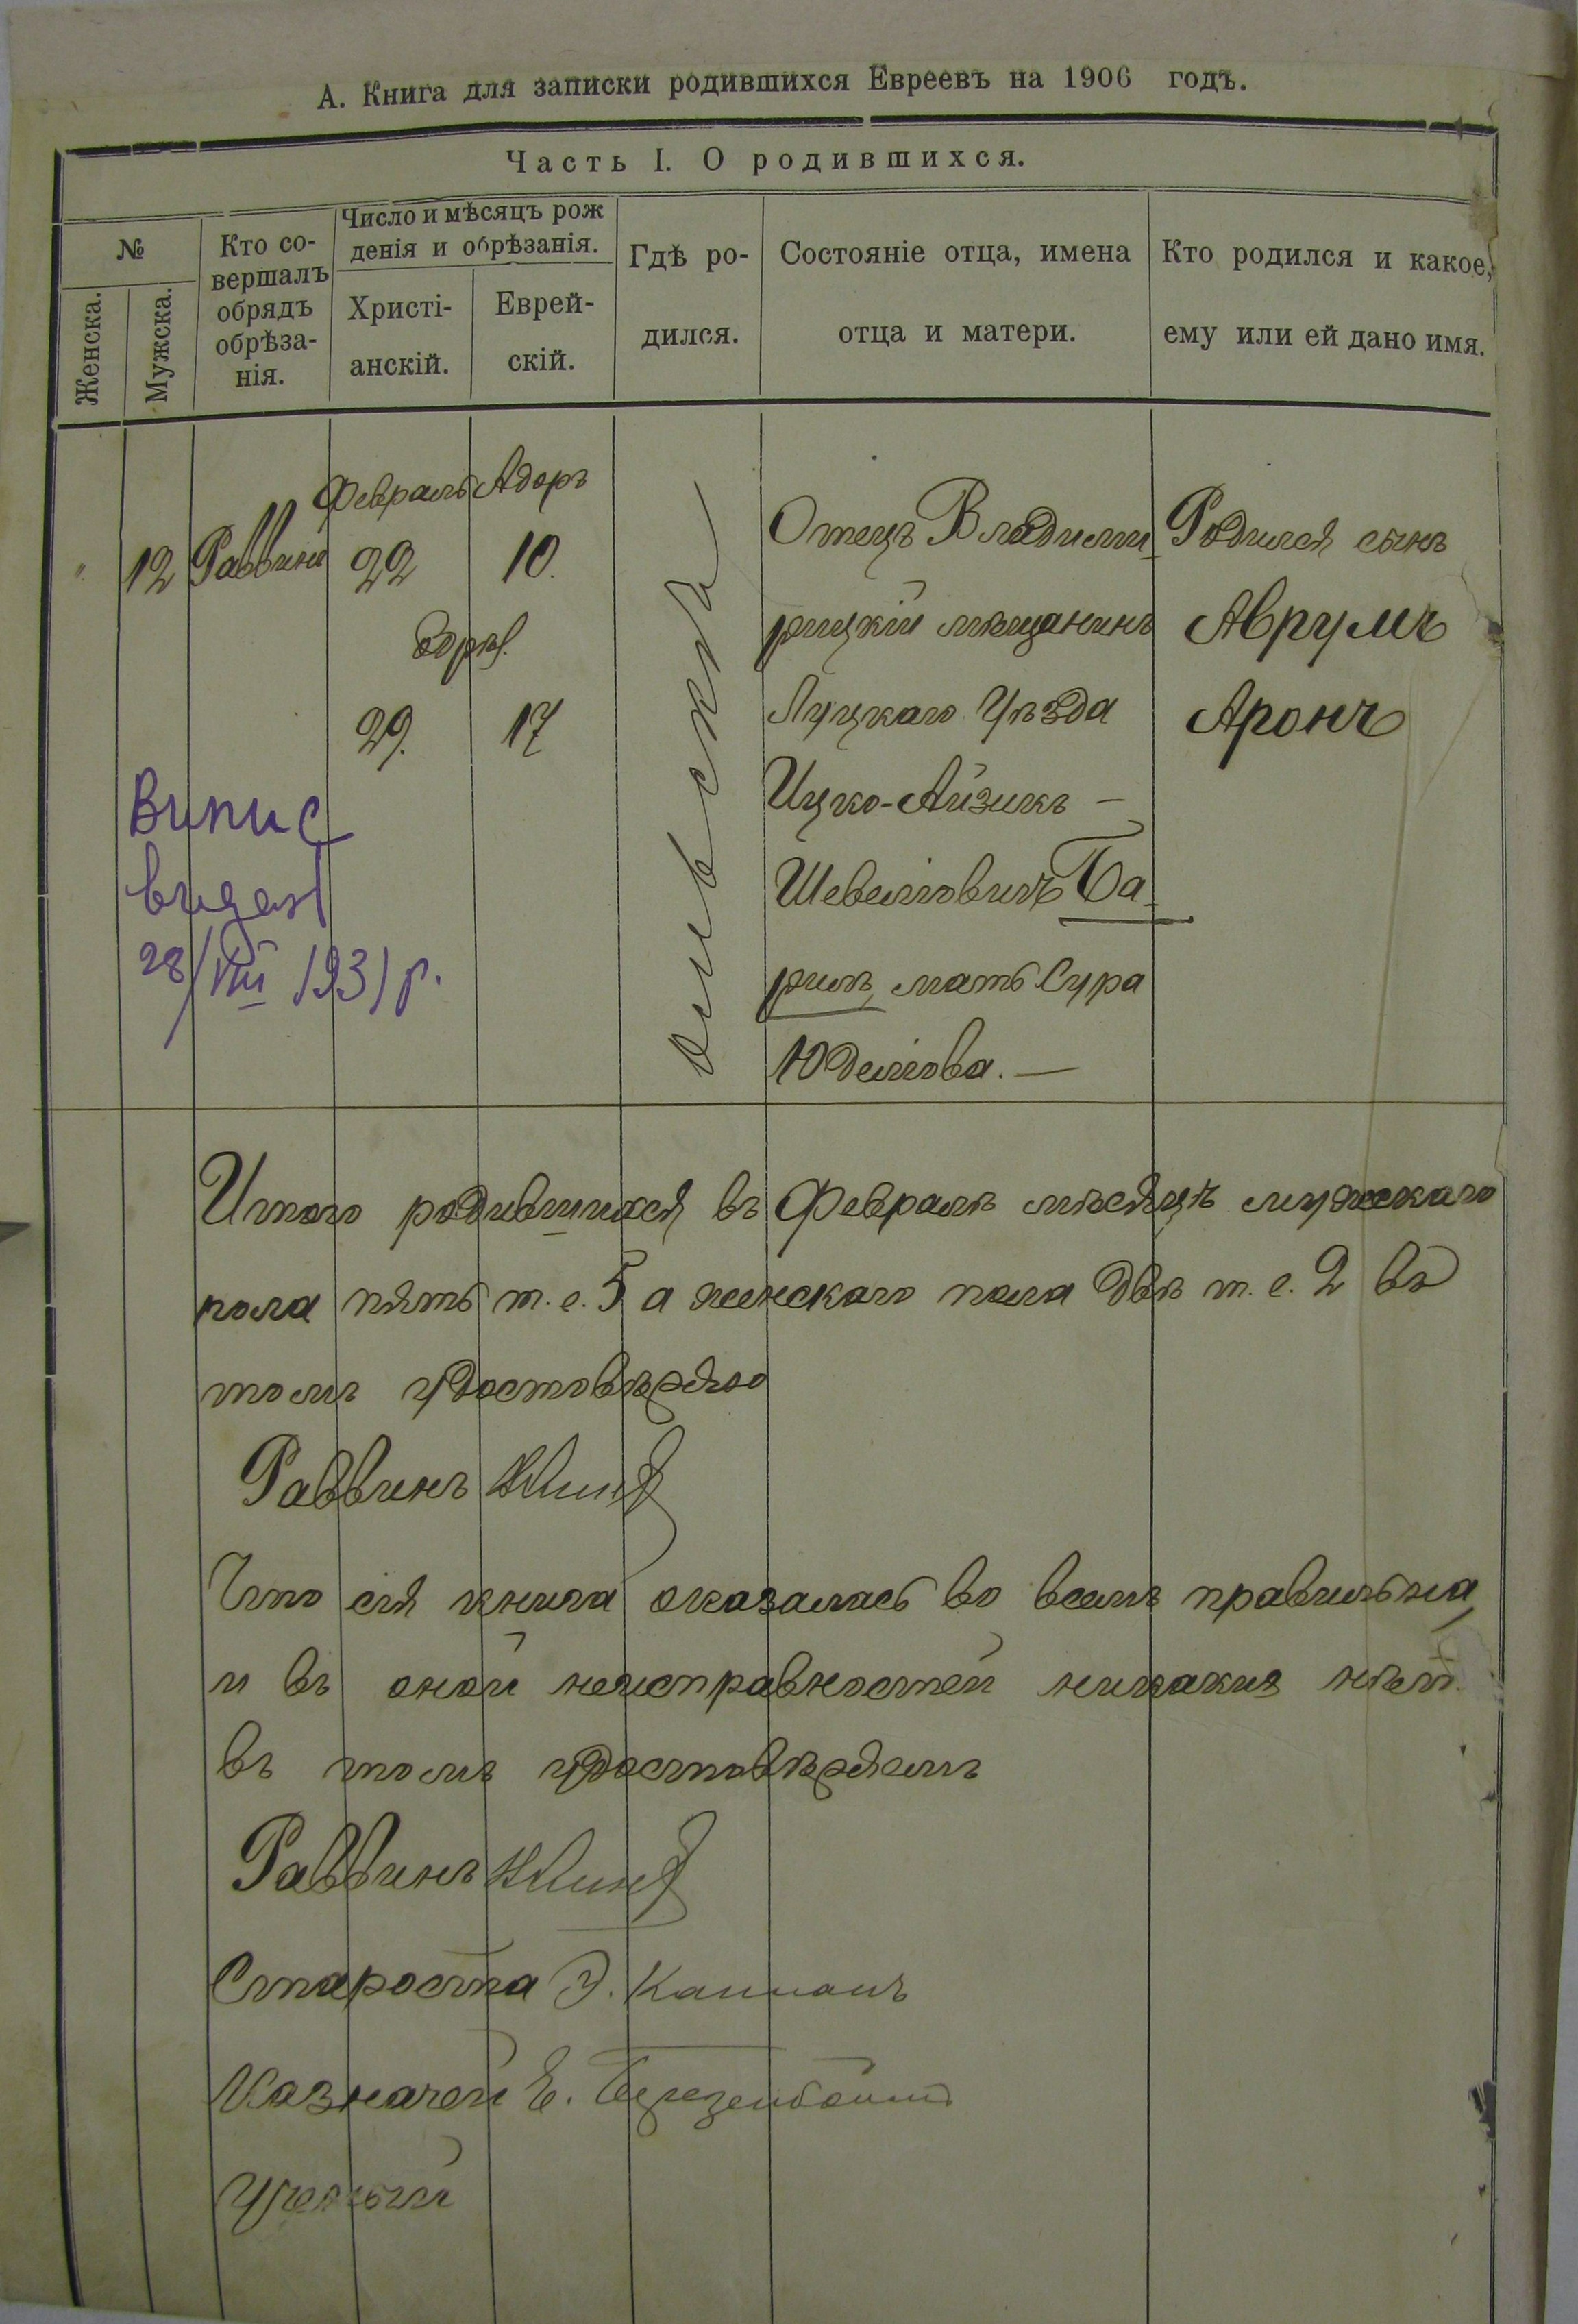 А. Книга для записки родившихся Евреевъ на 1906 годъ.
Часть I. О родившихся.
№
Женска.
Мужска.
Кто со-
вершалъ
обрядъ
обрѣза-
нія.
Число и мѣсяцъ рож
денія и обрѣзанія.
Христі-
анскій.
Еврей-
скій.
Гдѣ ро-
дился.
Состояніе отца, имена
отца и матери.
Кто родился и какое,
ему или ей дано имя.
"
12
Раввинъ
Февраль
22
29.
Адоръ
10.
17
Отецъ Владими-
рицкій мѣщанинъ
Луцкаго Уѣзда
Ицко-Айзикъ –
Шевелиовичъ Ба-
рилъ, мать Сура
Юделиова. —
Родился сынъ
Аврумъ
Аронъ
Випис
видав
28/VIII 1931 р.
Итого родившихся въ Февралѣ мѣсяцѣ мужскаго
пола пять т. е. 5 а женскаго пола двѣ т. е. 2 въ
томъ удостовѣряю
Раввинъ
Что сія книга оказалась во всемъ правильна,
и въ оной неисправностей никакия нѣтъ.
въ томъ удостовѣряемъ
Раввинъ
Староста
Казначей Е.
Ученый